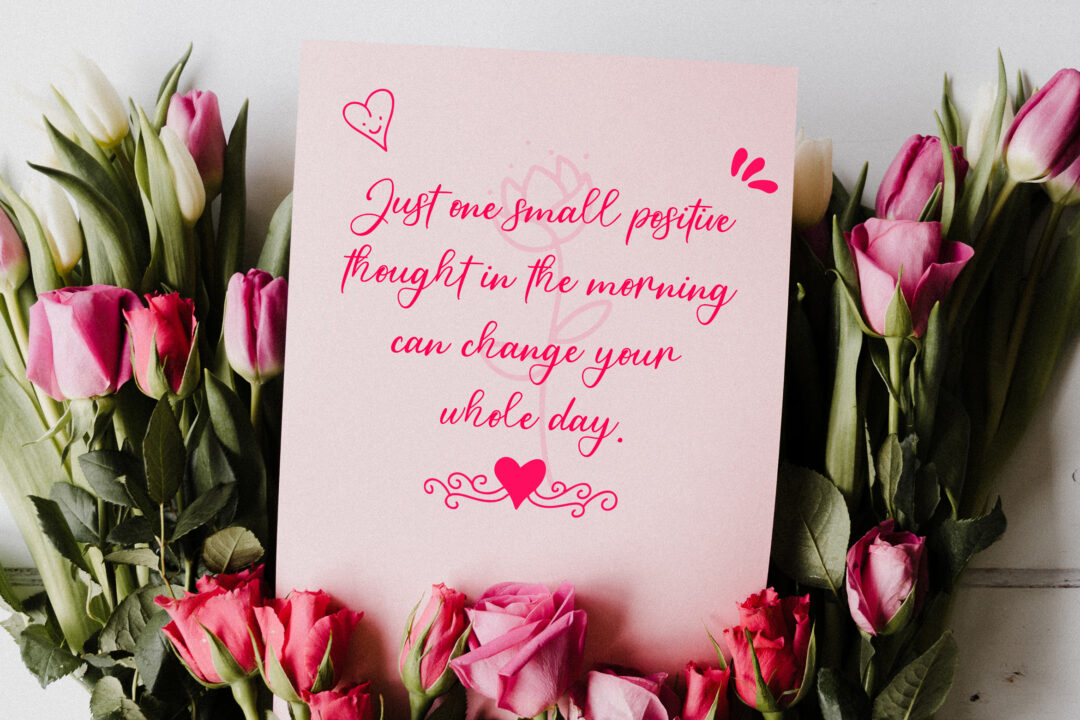 Just one small positive
thought in the morning
can change your
whole day.